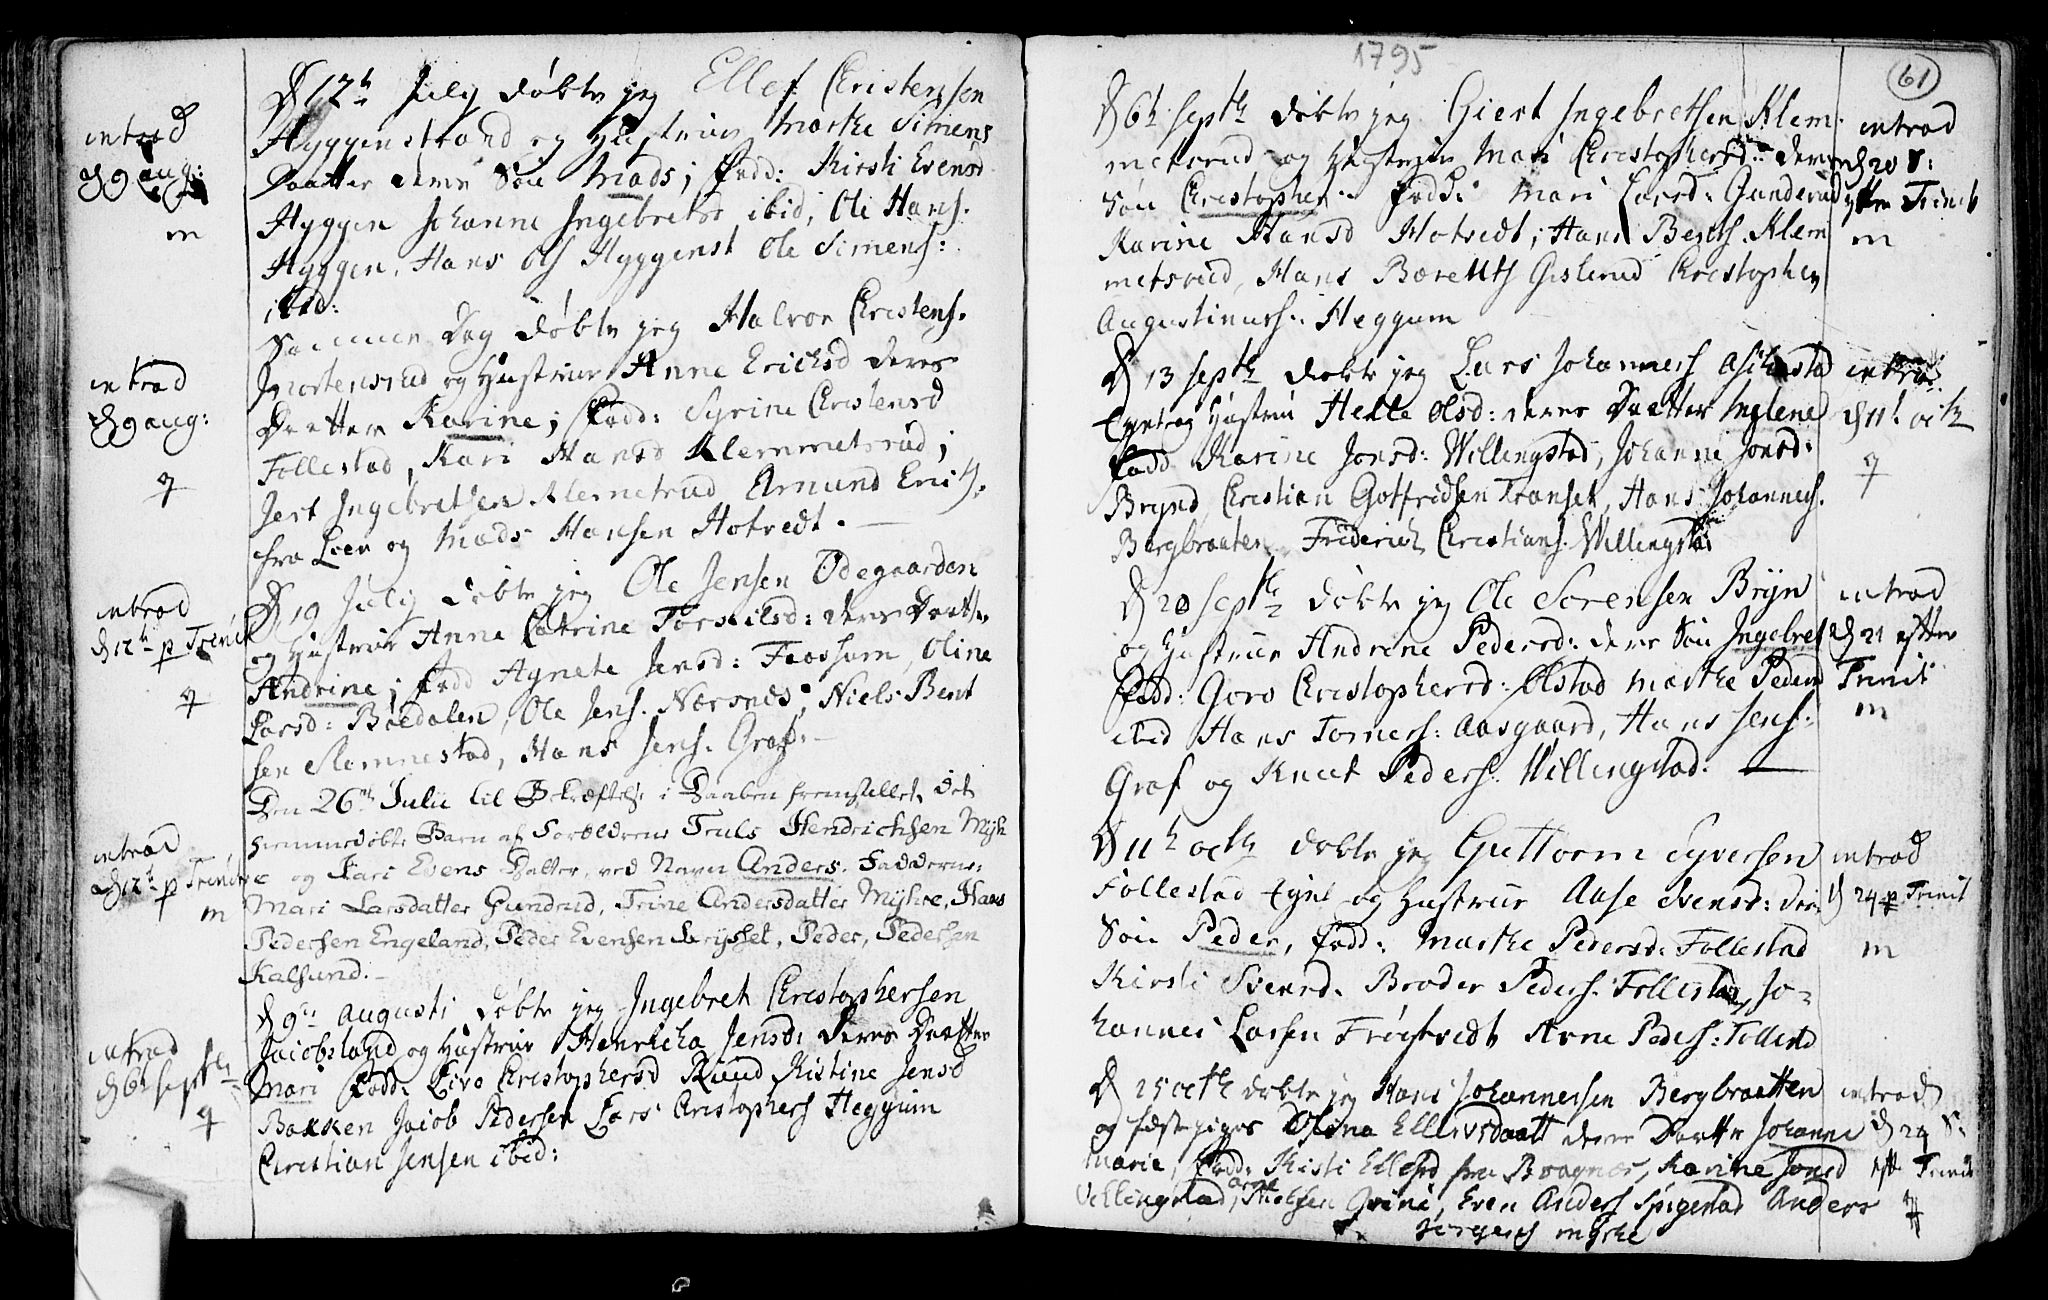 D 12te July døbte jeg Ellef Christensen
Hyggenstrand og Hustrue Marthe Simens
Daatter deres Søn Mads; fadd: Kirsti Evensd
Hyggen Johanne Ingebretsd ibid, Ole Hans.
Hyggen, Hans Ols Hyggenst Ole Simens:
ibid:
introd
d 9 aug:
m
Samme Dag døbte jeg Halvor Christens.
Mortensrud og Hustrue Anne Erichsd deres
Daatter Karine; fadd: Syrine Christensd
Follestad, Kari Hansd Klemmetsrud;
Jert Ingebretsen Klemetrud Amund Erichs.
fra Leer og Mads Hansen Hotvedt.
introd
d 9 aug:
q
D 19 July døbte jeg Ole Jensen Ødegaarden
og Hustrue Anne Catrine Torkilsd: deres Daatter
Andrine; fadd Agnete Jensd: Fossum, Oline
Larsd: Bøedalen, Ole Jens. Nærsnes, Niels Bent
sen Ramnestad, Hans Jens. Graf.
introd
d 12te p Trinit
q
Den 26de Julii til Bekræftelse i Daaben fremstillet det
hiemmedøbte Barn af Forældrene Truls Hendrichsen Myh
re og Kari Evens Datter, ved Navn Anders. Fadderne:
Mari Larsdatter Gundrud, Trine Andersdatter Myhre, Hans
Pedersen Engeland, Peder Evensen Krysset, Peder Pedersen
Kalsund.
introd
d 12te p Trinit
m
D 9de Augusti døbte jeg Ingebret Christophersen
Jacobsland og Hustrue Henricha Jensd: deres Daatter
Mari fadd: Live Christophersd Ruud Kistine Jensd
Bakken Jacob Pedersen Lars Christophers Heggum
Christian Jensen ibid:
introd
d 6te septbr
q
1795
61
D 6te septbr døbte jeg Giert Ingebretsen Klem
metsrud og Hustrue Mari Christophersd: deres
Søn Christopher. fadd: Mari Larsd: Gunderud
Karine Hansd Hotvedt, Hans Bents. Klem
metsrud, Hans Barenths Gislerud Christopher
Augustinuss: Heggum
introd
d 20 S:
efter Trinit
m
D 13 septbr døbte jeg Lars Johanness Asikstad
Eyet og Hustru Helle Olsd: deres Daatter Inglene
fadd Karine Jonsd: Willingstad, Johanne Jonsd:
Brynd Christian Gotfridsen Transet, Hans Johanness.
Bergbraaten Friderich Christians. Willingstad
introd.
d 11te octb
q
D 20 septbr døbte jeg Ole Sørensen Bryn
og Hustrue Andrine Pedersd: deres Søn Ingebret
fadd: Goro Christophersd: Ølstad Marthe Pedersd
ibid Hans Tomess: Aasgaard, Hans Jens:
Graf og Knut Peders. Willingstad.
introd
d 21 efter
Trinit
m
D 11te octbr døbte jeg Guttorm Syversen
Follestad Eyet og Hustrue Aase Svensd: deres
Søn Peder, fadd: Marthe Pedersd: Follestad
Kirsti Svensd. Broder Peders. Follestad, Jo-
hannes Larsen Frøtvedt Arne Peders: Follestd
introd
d 24 p Trinit
m
D 25 octbr døbte jeg Hans Johannessen Bergbraatten
og fæstepiges Olina Ellevsdaatt deres Daatter Johanne
Marie, fadd: Kisti Ellefsd fra Bragnæs, Karine Jonsd
Vellingstad, Nielsen Grini, Even Anders Spigestad Anders
Jørgens Myhre
introd
d 24 S:
eft Trinit
q